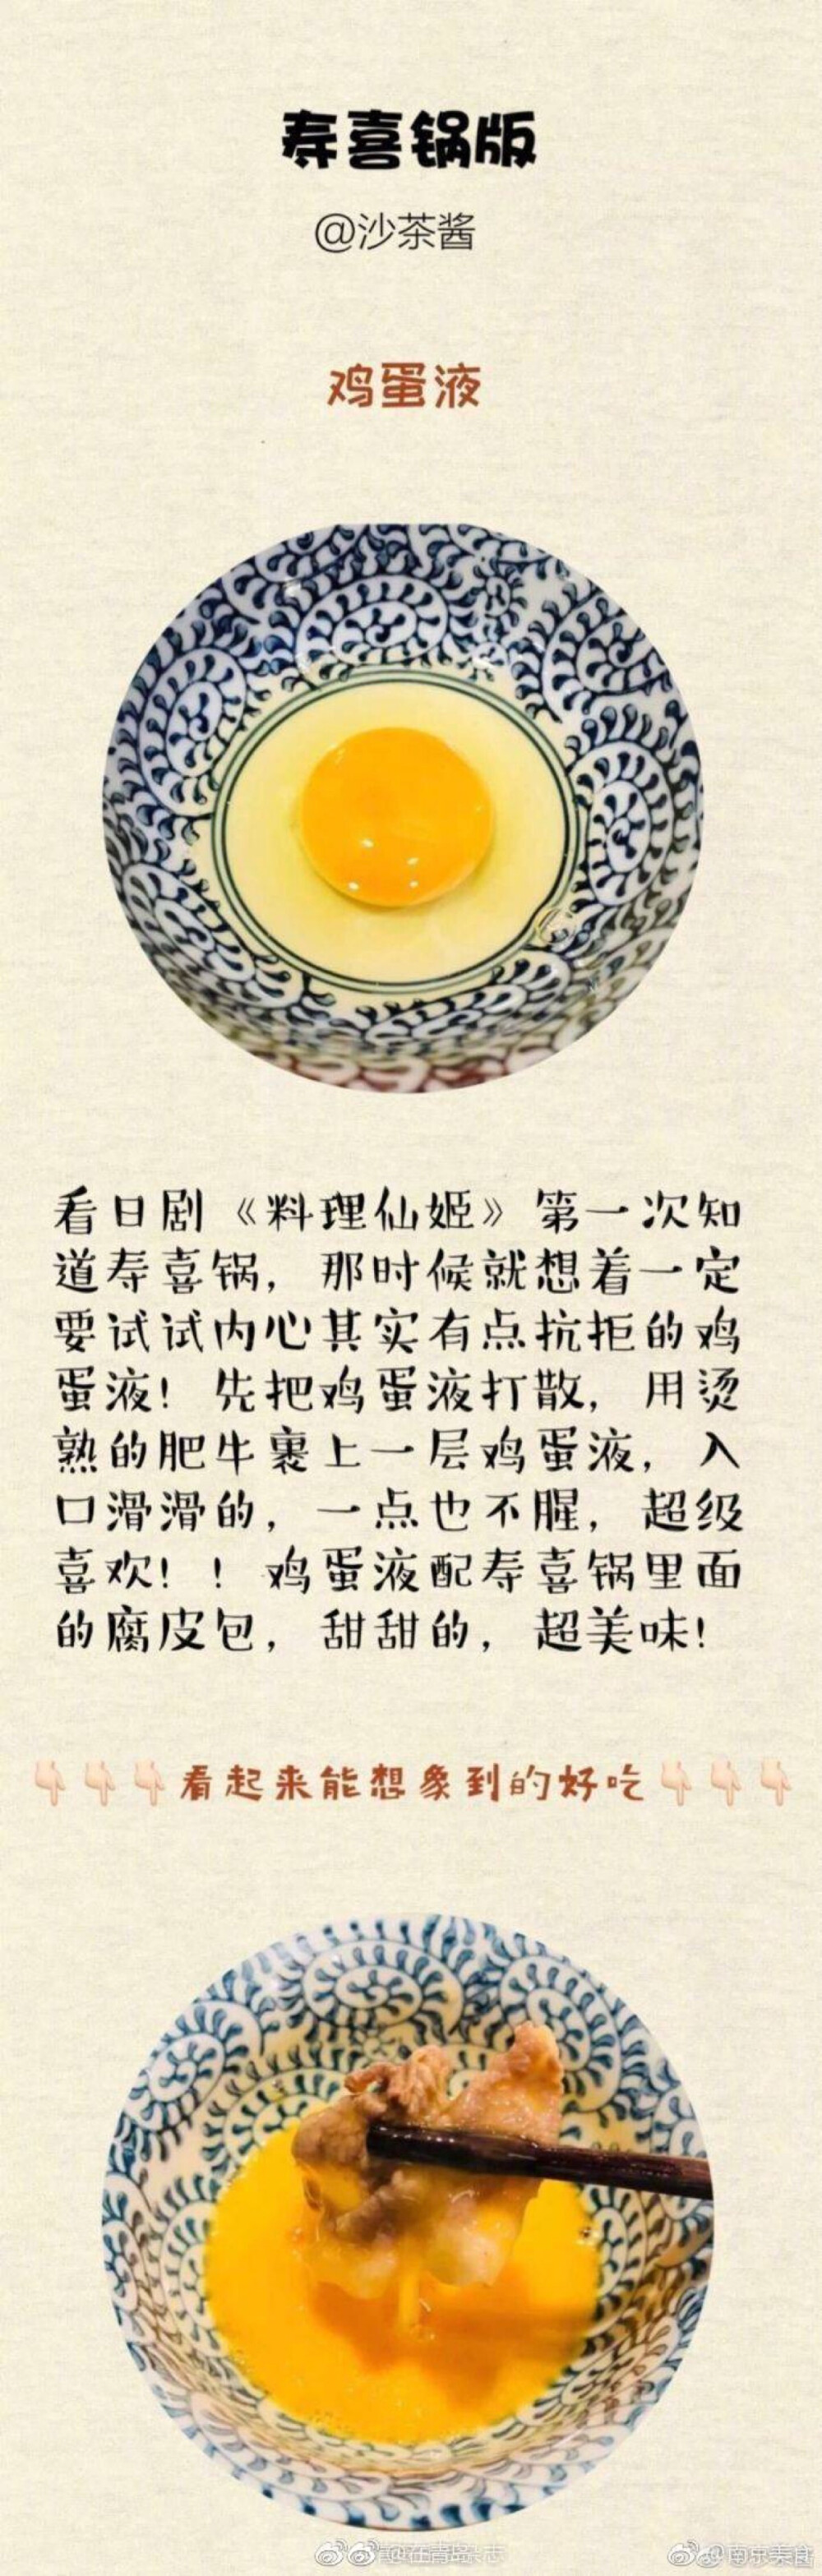 寿喜锅版
@沙茶酱
鸡蛋液
看日剧《料理仙姬》第一次知
道寿喜锅，那时候就想着一定
要试试内心其实有点抗拒的鸡
蛋液！先把鸡蛋液打散，用烫
熟的肥牛裹上一层鸡蛋液，入
口滑滑的，一点也不腥，超级
喜欢！！鸡蛋液配寿喜锅里面
的腐皮包，甜甜的，超美味！
👇👇👇看起来能想象到的好吃👇👇👇
@南京美食